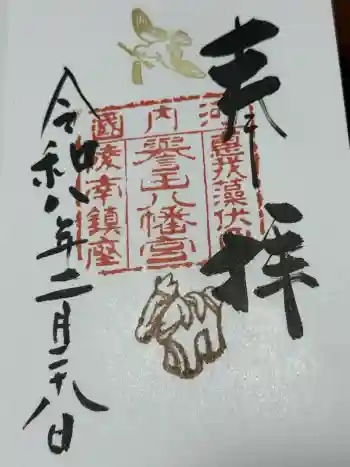 奉拝
河内國
惠我藻伏岡
譽田八幡宮
陵南鎮座
令和八年二月二十八日